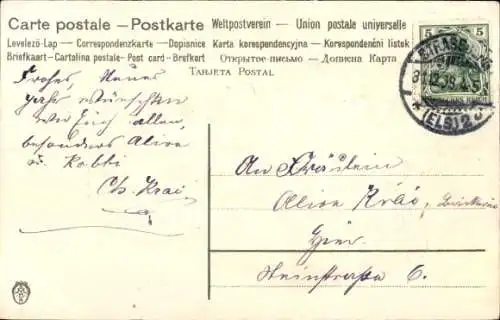 Carte postale – Postkarte Weltpostverein – Union postale universelle
Levelező-Lap – Correspondenzkarte – Dopisnice Karta korespondencyjna – Korespondenční lístek
Briefkaart – Cartolina postale – Post card – Brefkort Открытое письмо – Дописна Карта
TARJETA POSTAL
5 5
STRASSBURG
(ELS) 2
Frohes, Neues
Jahr wünschen
wir Euch allen,
besonders Alice
u.
Ch. Krai
An Fräulein
Alice
Hier
Steinstrasse 6.